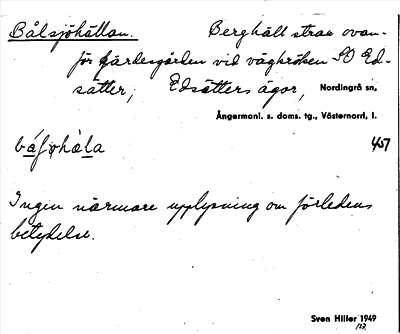 Bålsjöhällan. Berghäll strax ovan-
för gärdesgården vid vägkröken SO Ed-
sätter, Edsätters ägor, Nordingrå sn,
Ångermanl. s. doms. tg., Västernorrl. l.
457
Ingen närmare upplysning om förledens
betydelse.
Sven Hiller 1949